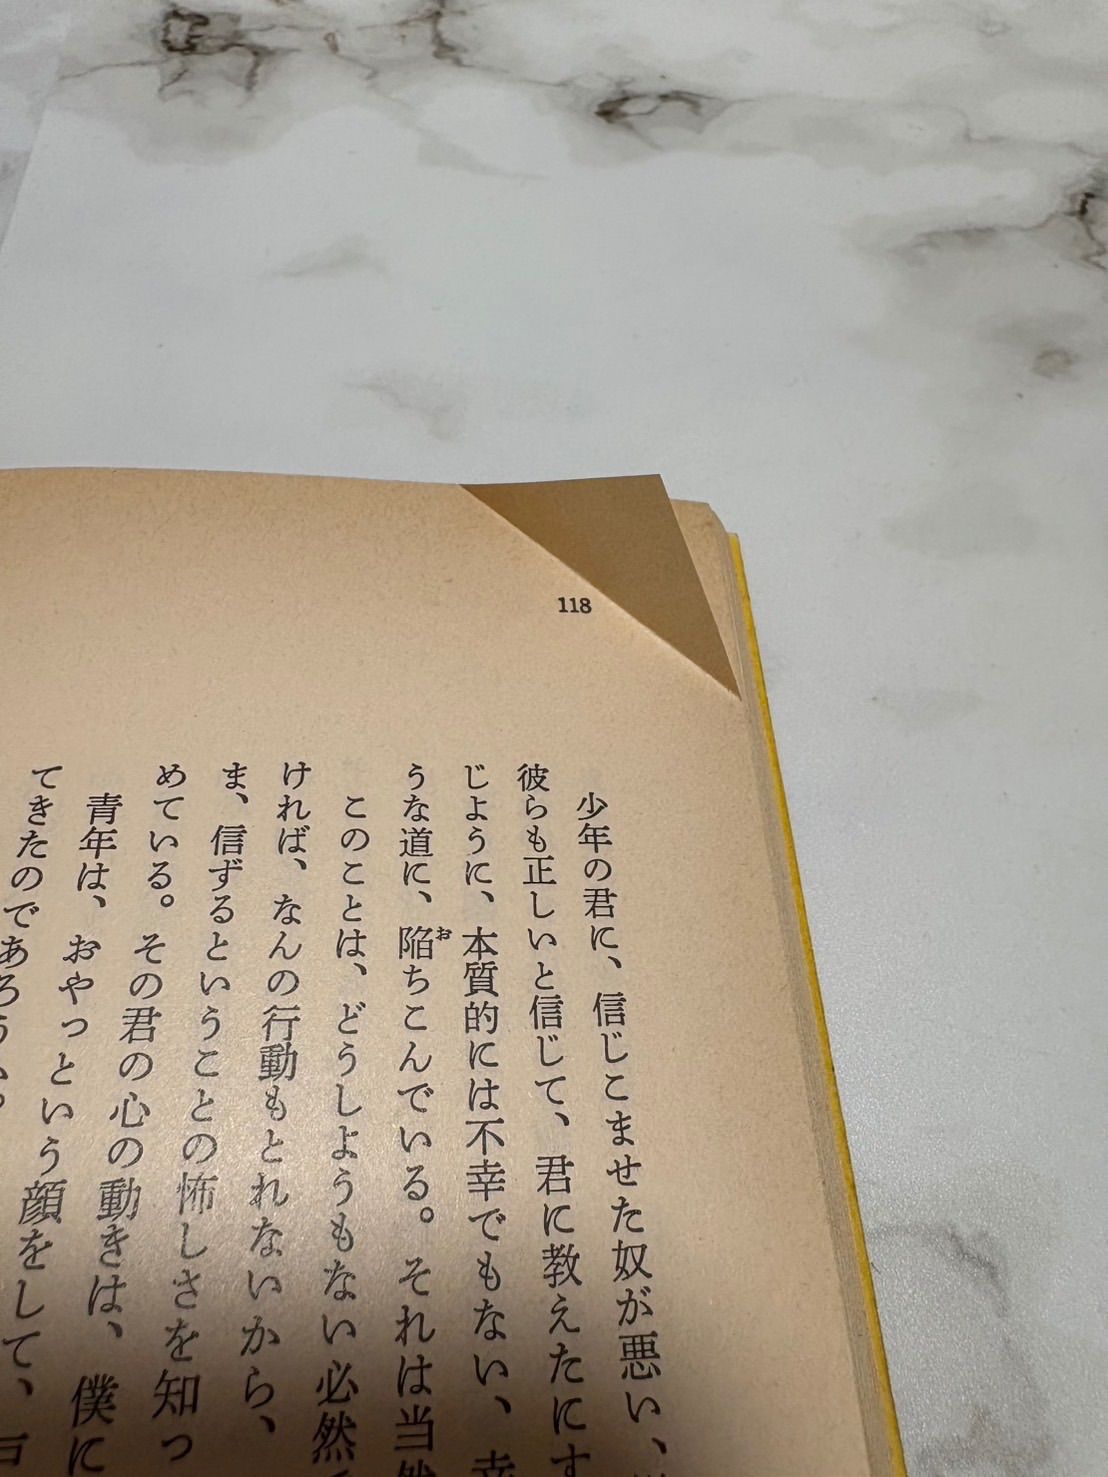 118
少年の君に、信じこませた奴が悪い、
彼らも正しいと信じて、君に教えたにす
じように、本質的には不幸でもない、幸
うな道に、陥ちこんでいる。それは当然
お
このことは、どうしようもない必然
ければ、なんの行動もとれないから、
ま、信ずるということの怖しさを知っ
めている。その君の心の動きは、僕に
青年は、おやっという顔をして、戸
てきたのであろうか。